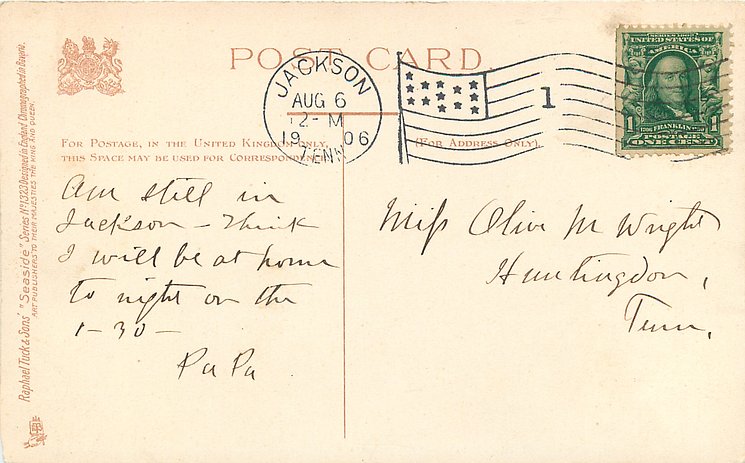 POST CARD
JACKSON
AUG 6
12-M
19 06
TENN.
1
SERIES 1902
UNITED STATES OF
AMERICA
1 FRANKLIN 1
POSTAGE
ONE CENT
FOR POSTAGE, IN THE UNITED KINGDOM ONLY,
THIS SPACE MAY BE USED FOR CORRESPONDENCE
(FOR ADDRESS ONLY).
Am still in
Jackson - Think
I will be at home
to night on the
1-30-
PaPa
Miss Olive M Wright
Huntingdon,
Tenn.
Raphael Tuck & Sons "Seaside" Series No 1323 Designed in England Chromographed in Bavaria.
ART PUBLISHERS TO THEIR MAJESTIES THE KING AND QUEEN.